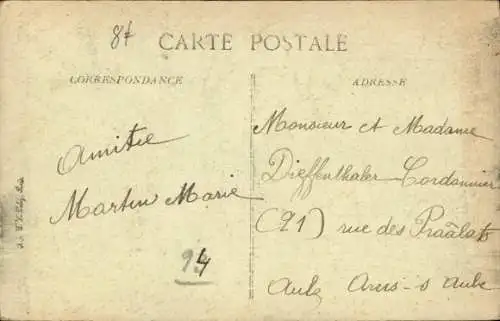 8f
CARTE POSTALE
CORRESPONDANCE
ADRESSE
Amitie
Martin Marie
94
Monsieur et Madame
Dieffenthaler Cordonnier
(21) rue des
Aube Arcis-s Aube